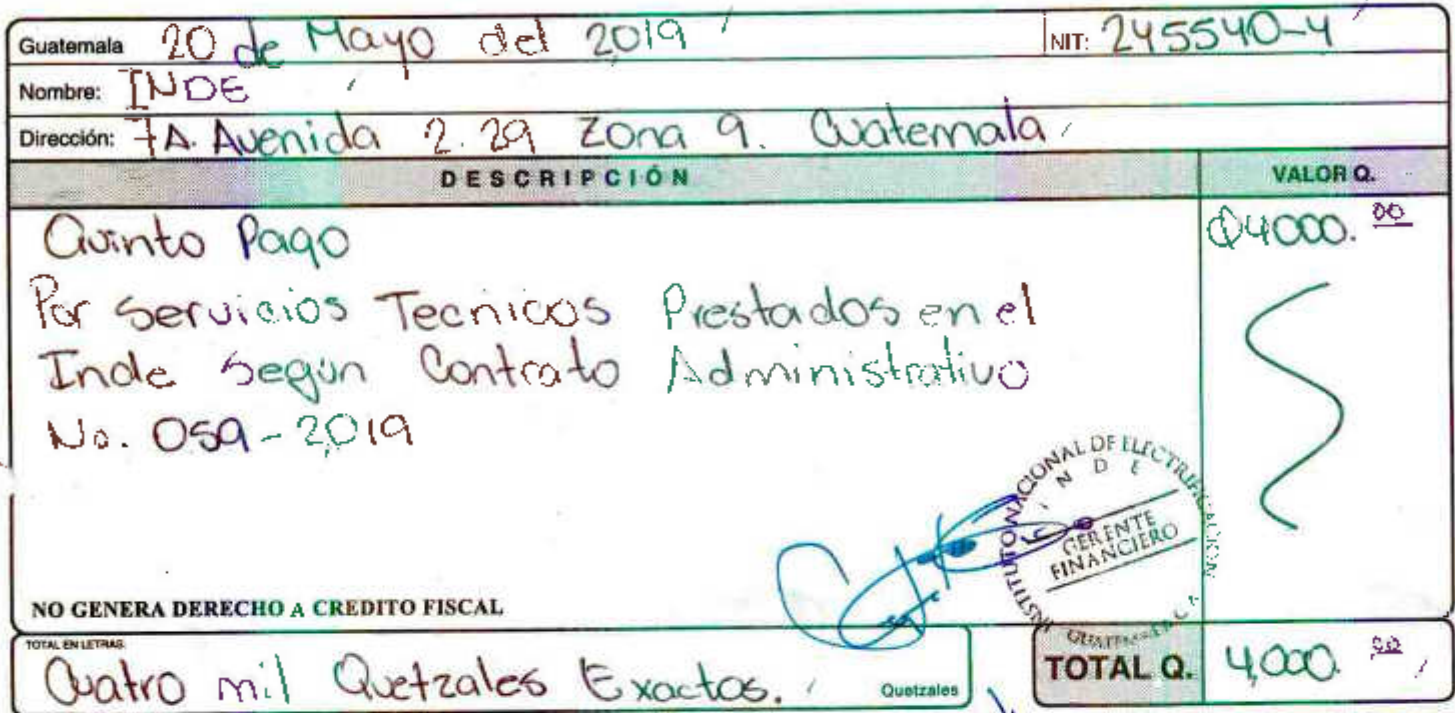 Guatemala 20 de Mayo del 2,019 NIT: 245540-4
Nombre: INDE
Dirección: 7A. Avenida 2.29 Zona 9. Guatemala
DESCRIPCIÓN VALOR Q.
Quinto Pago Q4000.00
Por Servicios Tecnicos Prestados en el
Inde Segun Contrato Administrativo
No. 059-2,019
INSTITUTO NACIONAL DE ELECTRIFICACION
INDE
GERENTE
FINANCIERO
GUATEMALA, C. A.
NO GENERA DERECHO A CREDITO FISCAL
TOTAL EN LETRAS:
Cuatro mil Quetzales Exactos. Quetzales
TOTAL Q. 4,000.00